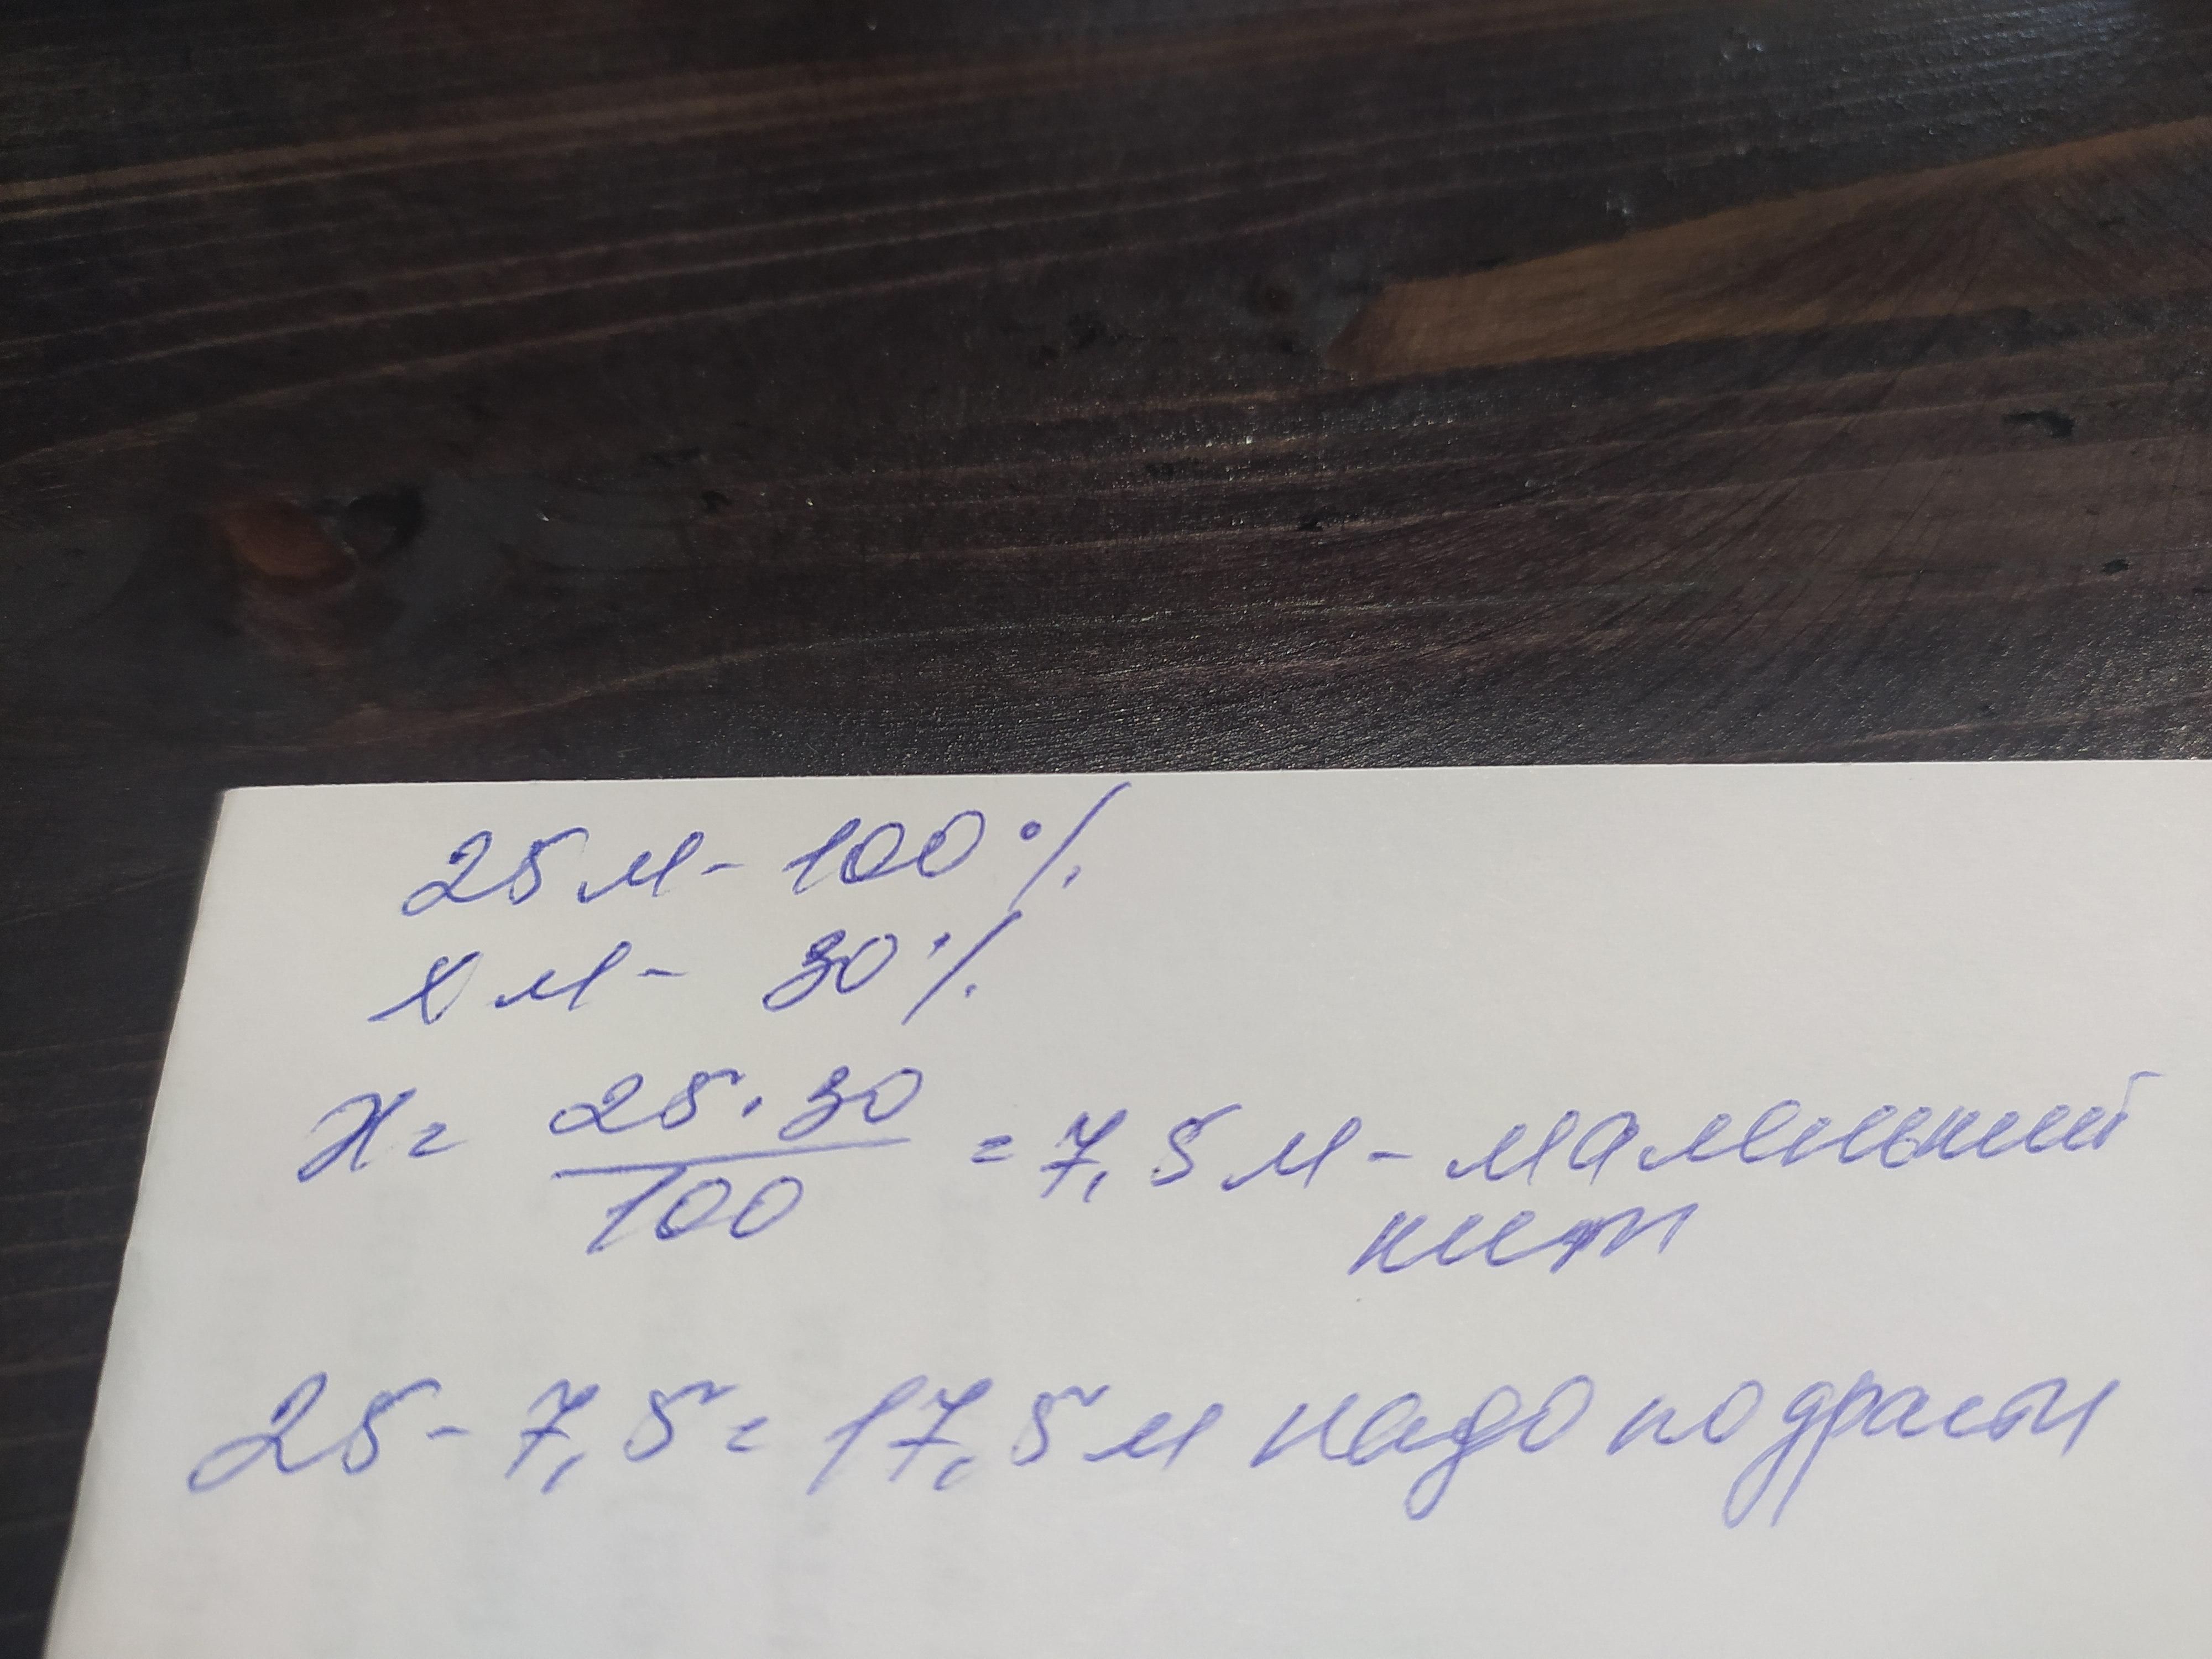 25 м - 100 %
x м - 30 %
x = 25 · 30 / 100 = 7,5 м - маленький
кит
25 - 7,5 = 17,5 м надо подрасти